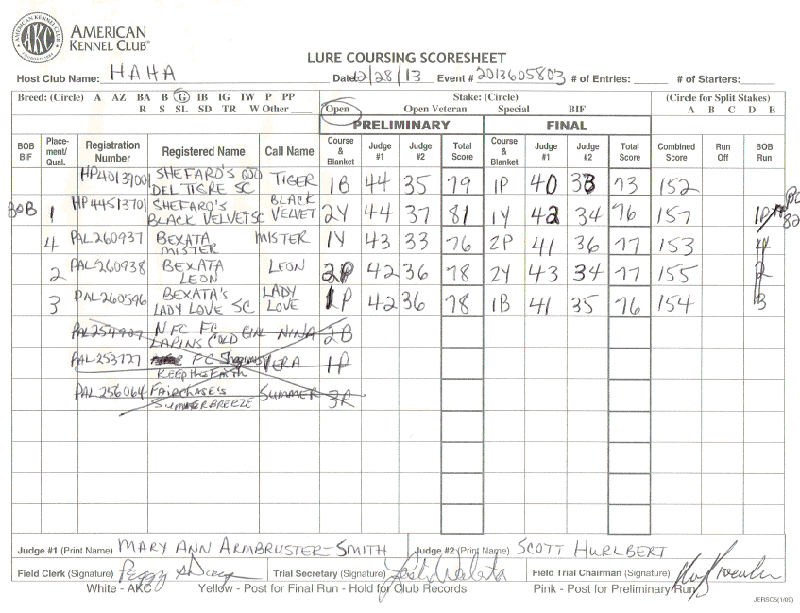 AMERICAN KENNEL CLUB
AKC
AMERICAN
KENNEL CLUB
LURE COURSING SCORESHEET
Host Club Name: HAHA Date: 2/28/13 Event # 2013605803 # of Entries: # of Starters:
Breed: (Circle) A AZ BA B G IB IG IW P PP Stake: (Circle) (Circle for Split Stakes)
R S SL SD TR W Other Open Open Veteran Special BIF A B C D E
PRELIMINARY FINAL
BOB BF Place-ment/ Qual. Registration Number Registered Name Call Name Course & Blanket Judge #1 Judge #2 Total Score Course & Blanket Judge #1 Judge #2 Total Score Combined Score Run Off BOB Run
HP40139001 SHEFARO'S
DEL TIGRE SC TIGER 1B 44 35 79 1P 40 33 73 152
BOB 1 HP4451370 SHEFARO'S BLACK VELVET SC BLACK VELVET 2Y 44 37 81 1Y 42 34 76 157 1P
4 PAL260937 BEXATA MISTER MISTER 1Y 43 33 76 2P 41 36 77 153 4
2 PAL260938 BEXATA LEON LEON 2P 42 36 78 2Y 43 34 77 155 2
3 PAL260596 BEXATA'S LADY LOVE SC LADY LOVE 1P 42 36 78 1B 41 35 76 154 3
PAL254907 NFC FC LAPINS COLD GIRL NINJA 2B
PAL253727 FC KEEP THE FAITH VERA 1P
PAL256064 FAIRCHASE'S SUMMER BREEZE SUMMER
Judge #1 (Print Name) MARY ANN ARMBRUSTER-SMITH Judge #2 (Print Name) SCOTT HURLBERT
Field Clerk (Signature) Peggy Trial Secretary (Signature) Field Trial Chairman (Signature)
White - AKC Yellow - Post for Final Run - Hold for Club Records Pink - Post for Preliminary Run
JERSC5(1/06)